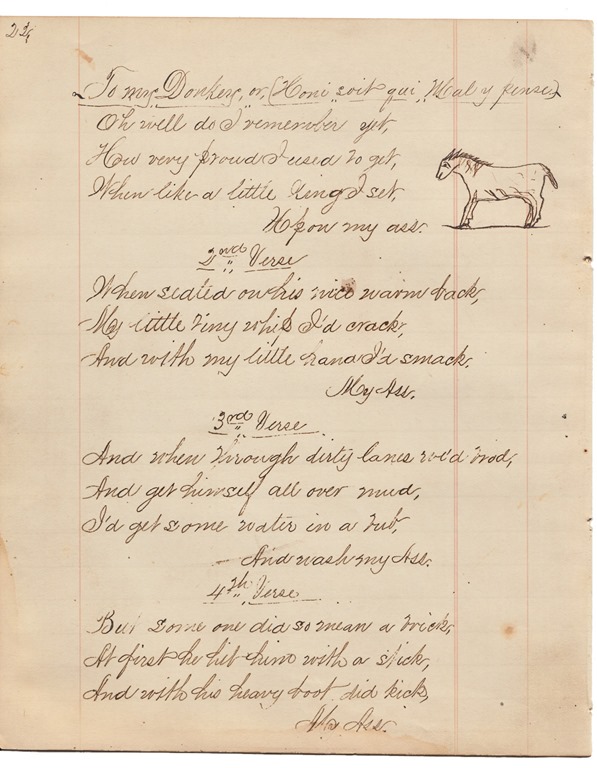 22
To my Donkey, or, (Honi soit qui Mal y pense)
Oh well do I remember yet,
How very proud I used to get,
When like a little king I set,
Upon my ass.
2nd Verse
When seated on his nice warm back,
My little tiny whip I'd crack,
And with my little hand I'd smack.
My Ass.
3rd Verse
And when through dirty lanes we'd trod,
And get himself all over mud,
I'd get some water in a tub,
And wash my Ass.
4th Verse
But some one did so mean a trick,
At first he hit him with a stick,
And with his heavy boot did kick,
My Ass.